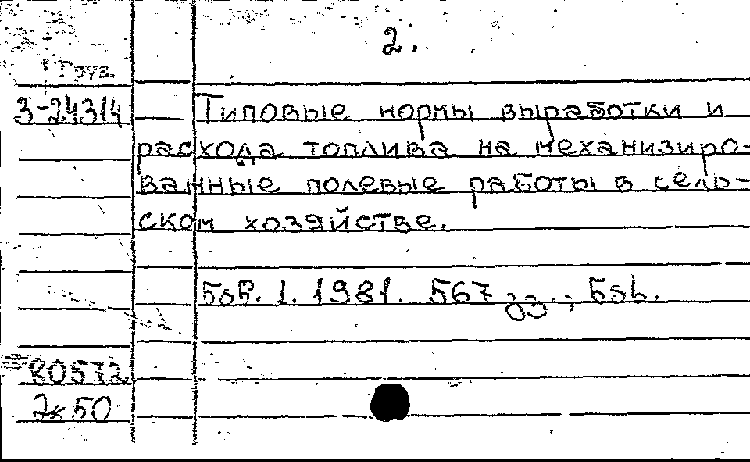 2.
Груз.
3-24314 Типовые нормы выработки и
расхода топлива на механизиро-
ванные полевые работы в сель-
ском хозяйстве.
1. 1981. 567
80572
2к 50